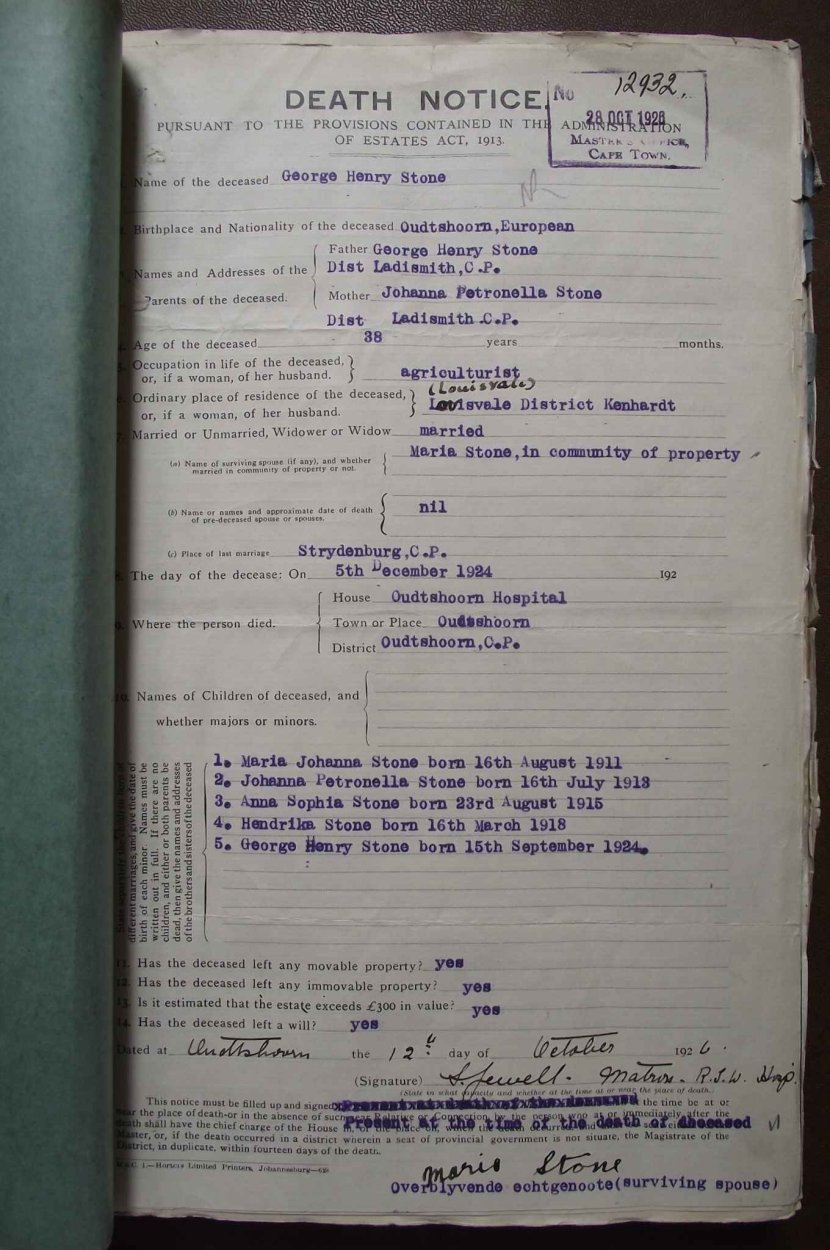 No 12932.
28 OCT 1926
MASTER'S OFFICE,
CAPE TOWN.
DEATH NOTICE.
PURSUANT TO THE PROVISIONS CONTAINED IN THE ADMINISTRATION
OF ESTATES ACT, 1913.
Name of the deceased George Henry Stone
Birthplace and Nationality of the deceased Oudtshoorn,European
Names and Addresses of the
Parents of the deceased.
Father George Henry Stone
Dist Ladismith,C.P.
Mother Johanna Petronella Stone
Dist Ladismith C.P.
Age of the deceased 38 years months.
5. Occupation in life of the deceased,
or, if a woman, of her husband. agriculturist
(Louisvale)
6. Ordinary place of residence of the deceased,
or, if a woman, of her husband. Louisvale District Kenhardt
7. Married or Unmarried, Widower or Widow married
(a) Name of surviving spouse (if any), and whether
married in community of property or not. Maria Stone,in community of property
(b) Name or names and approximate date of death
of pre-deceased spouse or spouses. nil
(c) Place of last marriage Strydenburg,C.P.
8. The day of the decease: On 5th December 1924 192
9. Where the person died.
House Oudtshoorn Hospital
Town or Place Oudtshoorn
District Oudtshoorn,C.P.
10. Names of Children of deceased, and
whether majors or minors.
different marriages, and give the date of
birth of each minor. Names must be
written out in full. If there are no
children, and either or both parents be
dead, then give the names and addresses
of the brothers and sisters of the deceased
1. Maria Johanna Stone born 16th August 1911
2. Johanna Petronella Stone born 16th July 1913
3. Anna Sophia Stone born 23rd August 1915
4. Hendrika Stone born 16th March 1918
5. George Henry Stone born 15th September 1924.
11. Has the deceased left any movable property? yes
12. Has the deceased left any immovable property? yes
13. Is it estimated that the estate exceeds £300 in value? yes
14. Has the deceased left a will? yes
Dated at Oudtshoorn the 12th day of October 1926.
(Signature) S. Jewell. Matron. R.S.W. Hosp.
(State in what capacity and whether at the time at or near the place of death.)
This notice must be filled up and signed the time be at or
near the place of death—or in the absence of such near Relative or Connection by the person who at or immediately after the
death shall have the chief charge of the House in, or the place on, which the death occurred
Present at the time of the death of dheceased
Master, or, if the death occurred in a district wherein a seat of provincial government is not situate, the Magistrate of the
District, in duplicate, within fourteen days of the death.
Horters Limited Printers, Johannesburg
Maria Stone
Overblyvende echtgenoote(surviving spouse)